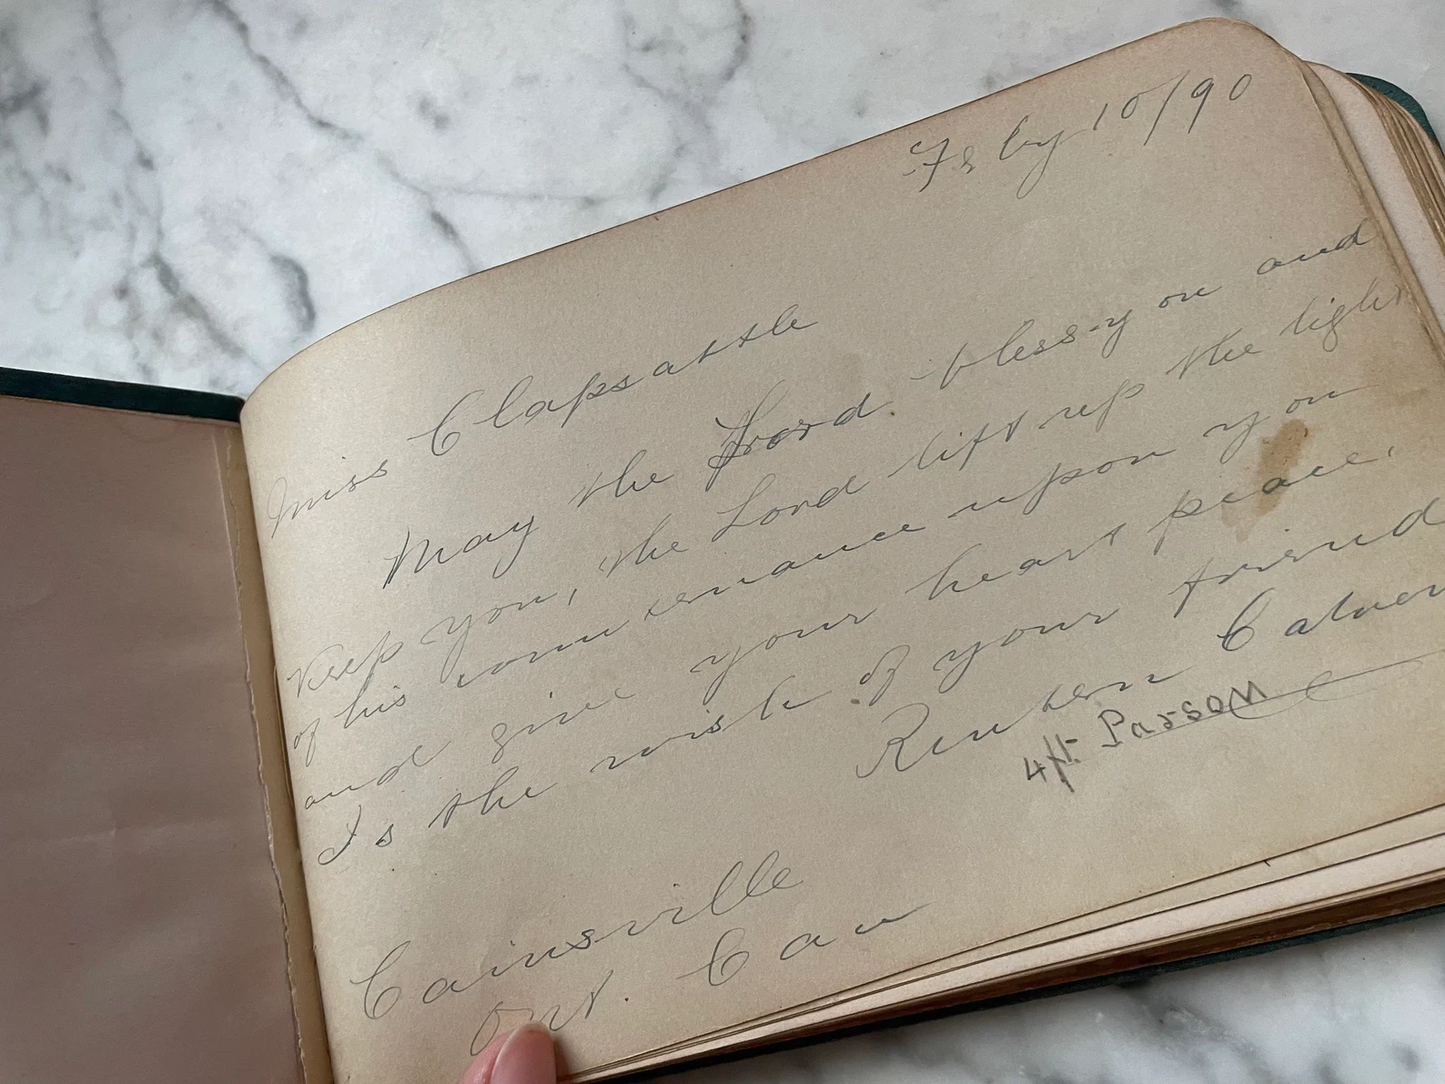 Feby 10/90
Miss Clapsattle
May the Lord bless you and
keep you, the Lord lift up the light
of his countenance upon you
and give your heart peace.
Is the wish of your friend
Reuben Calver
4ft. Parson
Cainsville
Ont. Can